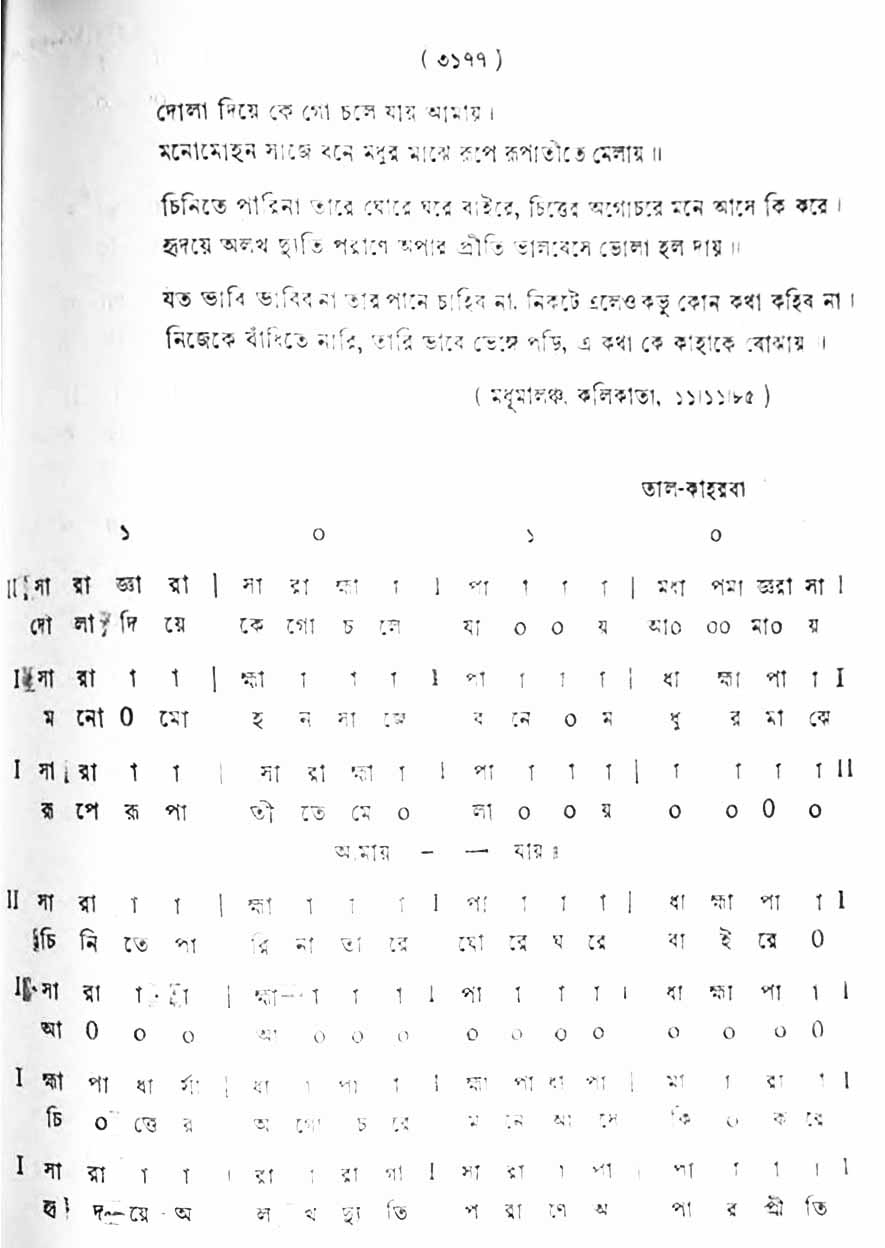 ( ৩১৭৭ )
দোলা দিয়ে কে গো চলে যায় আমায়।
মনোমোহন সাজে বনে মধুর মাঝে রূপে রূপাতীতে মেলায়॥
চিনিতে পারিনা তারে ঘোরে ঘরে বাইরে, চিত্তের অগোচরে মনে আসে কি করে।
হৃদয়ে অলখ দ্যুতি পরাণে অপার প্রীতি ভালবেসে ভোলা হল দায়॥
যত ভাবি ভাবিব না তার পানে চাহিব না, নিকটে এলেও কভু কোন কথা কহিব না।
নিজেকে বাঁধিতে নারি, তারি ভাবে ভেঙ্গে পড়ি, এ কথা কে কাহাকে বোঝায় ।
( মধুমালঞ্চ, কলিকাতা, ১১।১১।৮৫ )
তাল-কাহরবা
১ ০ ১ ০
II সা রা জ্ঞা রা | সা রা হ্মা া I পা া া া | মধা পমা জ্ঞরা সা I
দো লা দি য়ে কে গো চ লে যা ০ ০ য় আ০ ০০ মা০ য়
I সা রা া া | হ্মা া া া I পা া া া | ধা হ্মা পা া I
ম নো 0 মো হ ন সা জে ব নে ০ ম ধু র মা ঝে
I সা রা া া | সা রা হ্মা া I পা া া া | া া া া II
রূ পে রূ পা তী তে মে ০ লা ০ ০ য় ০ ০ 0 ০
আমায় - — যায়॥
II সা রা া া | হ্মা া া া I পা া া া | ধা হ্মা পা া I
চি নি তে পা রি না তা রে ঘো রে ঘ রে বা ই রে 0
I সা রা া া | হ্মা া া া I পা া া া । ধা হ্মা পা া I
আ 0 ০ ০ আ ০ ০ ০ ০ ০ ০ ০ ০ ০ ০ 0
I হ্মা পা ধা র্সা | ধা া পা া I হ্মা পা ধা পা | মা া রা া I
চি ০ ত্তে র অ গো চ রে ম নে আ সে কি ০ ক রে
I সা রা া া । রা া রা গা I সা রা া পা । পা া া । I
হৃ দ য়ে অ ল খ দ্যু তি প রা ণে অ পা র প্রী তি